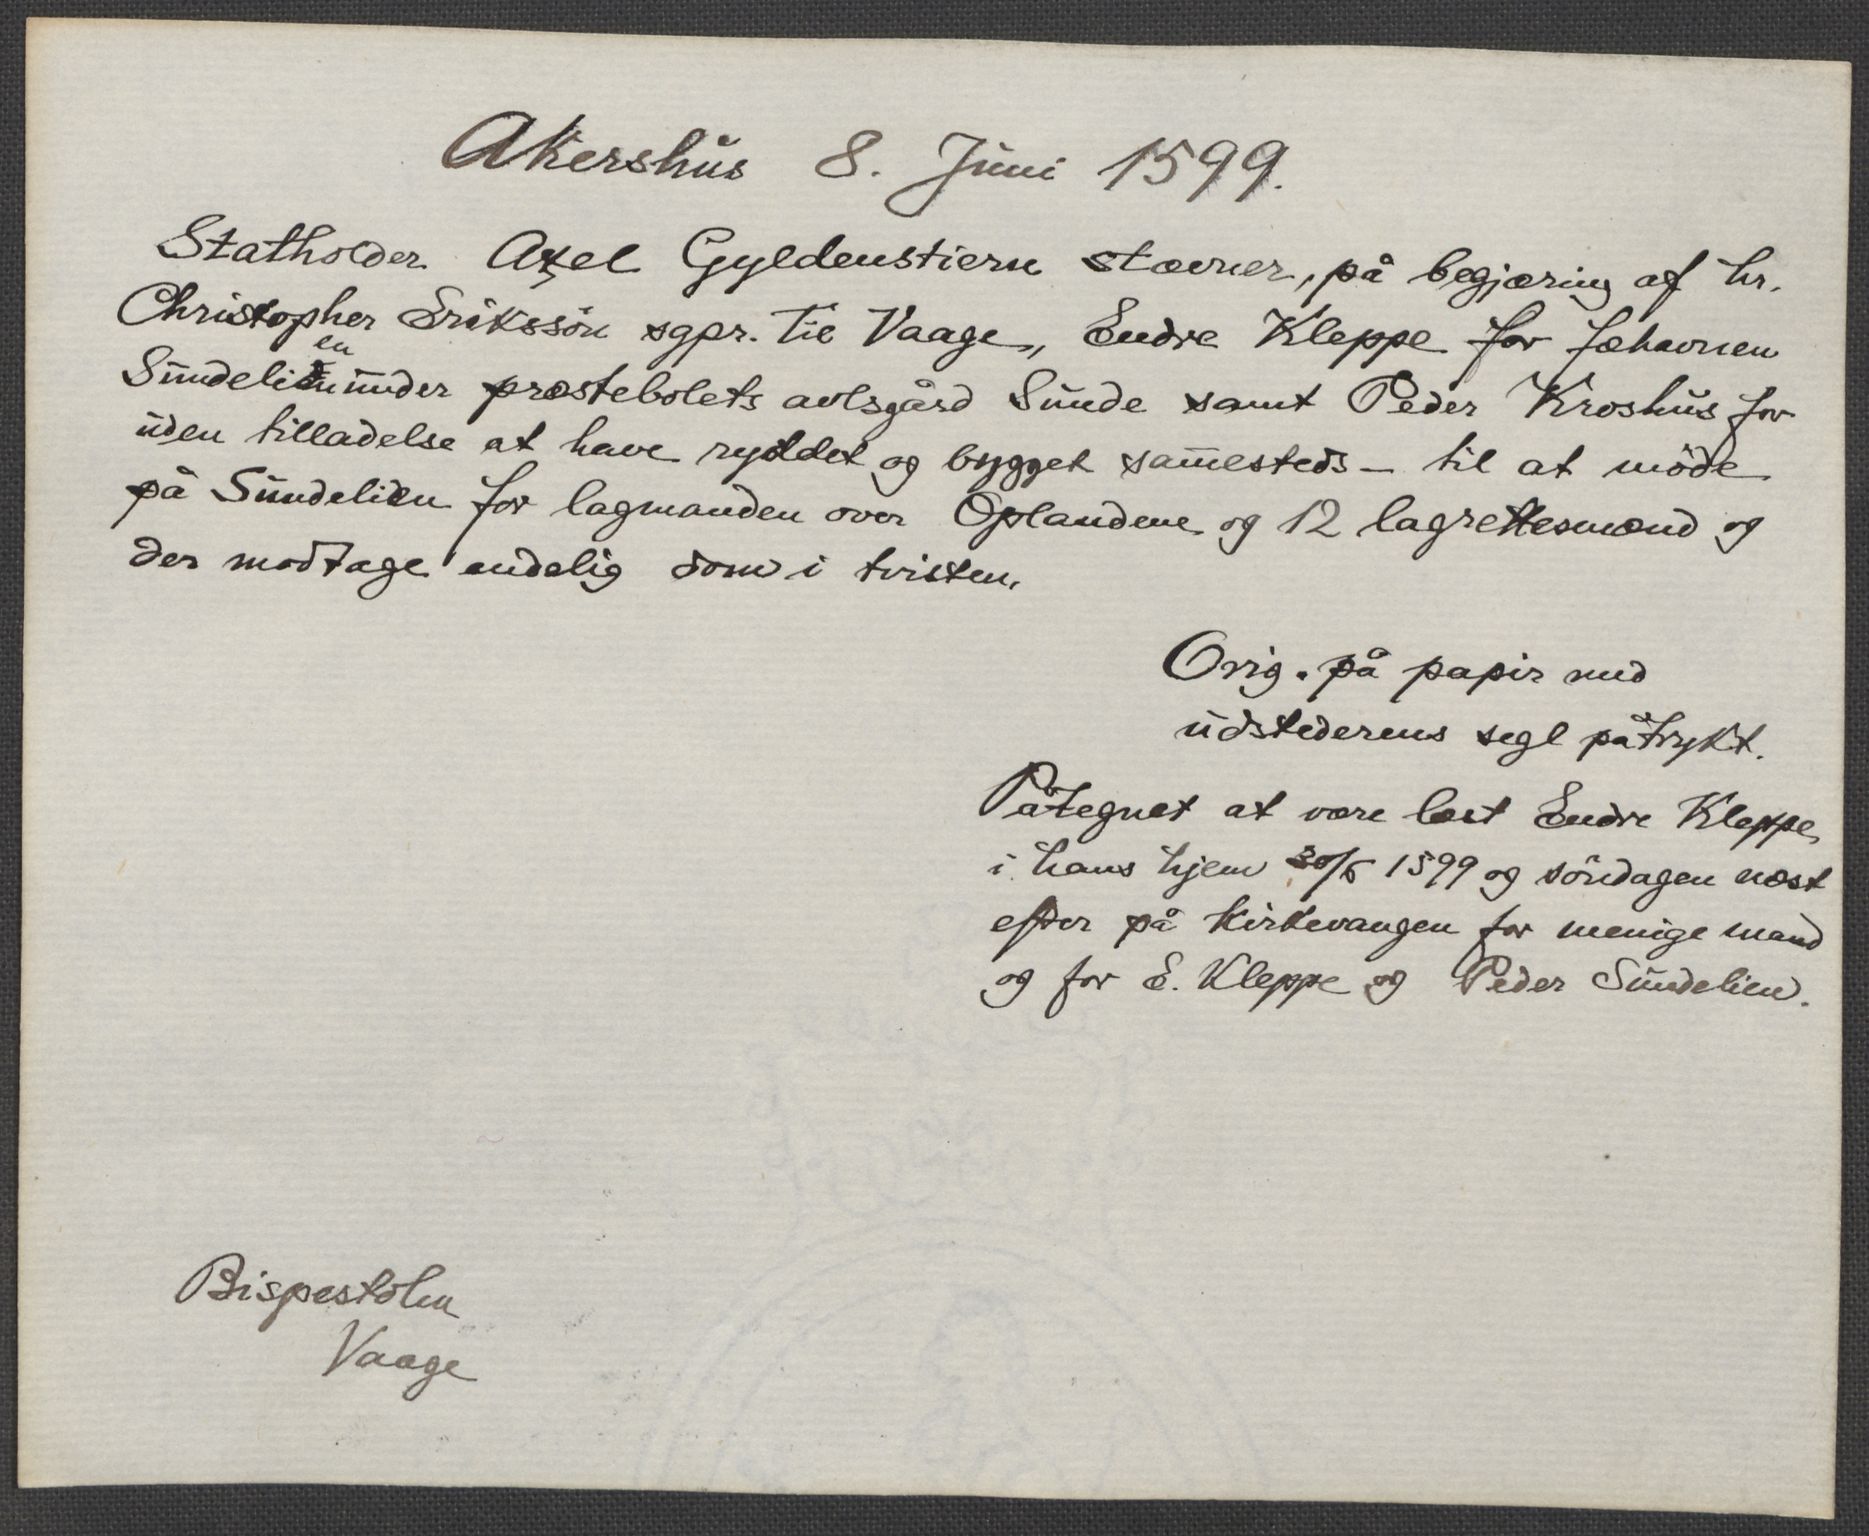 Akershus 8. Juni 1599.
Statholder Axel Gyldenstiern stævner, på begjæring af hr.
Christopher Erikssön sgpr. til Vaage, Endre Kleppe for fæhavnen
Sundelien under præstebolets avlsgård Sunde samt Peder Kroshus for
uden tilladelse at have ryddet og bygget sam̄esteds – til at möde
på Sundelien for lagmanden over Oplandene og 12 lagrettesmænd og
der modtage endelig dom i tvisten.
Orig. på papir med
udstederens segl påtrykt.
Påtegnet at være læst Endre Kleppe
i hans hjem 30/6 1599 og söndagen næst
efter på kirkevangen for menige mand
og for E. Kleppe og Peder Sundelien.
Bispestolen
Vaage